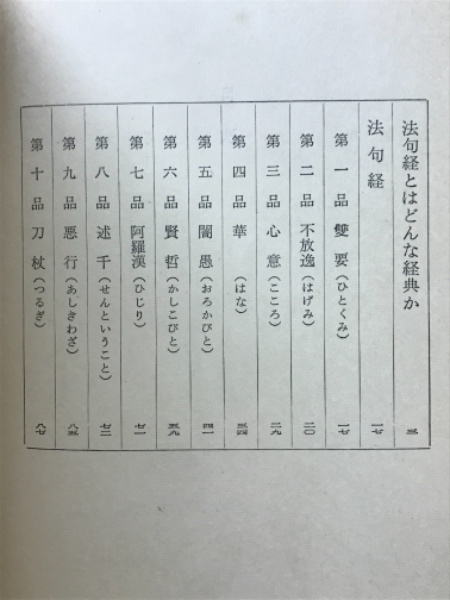 法句経とはどんな経典か 三
法句経 一七
第一品 雙要(ひとくみ) 一七
第二品 不放逸(はげみ) 二〇
第三品 心意(こころ) 二九
第四品 華(はな) 三四
第五品 闇愚(おろかびと) 四一
第六品 賢哲(かしこびと) 五九
第七品 阿羅漢(ひじり) 七一
第八品 述千(せんということ)
第九品 悪行(あしきわざ) 八五
第十品 刀杖(つるぎ) 八七